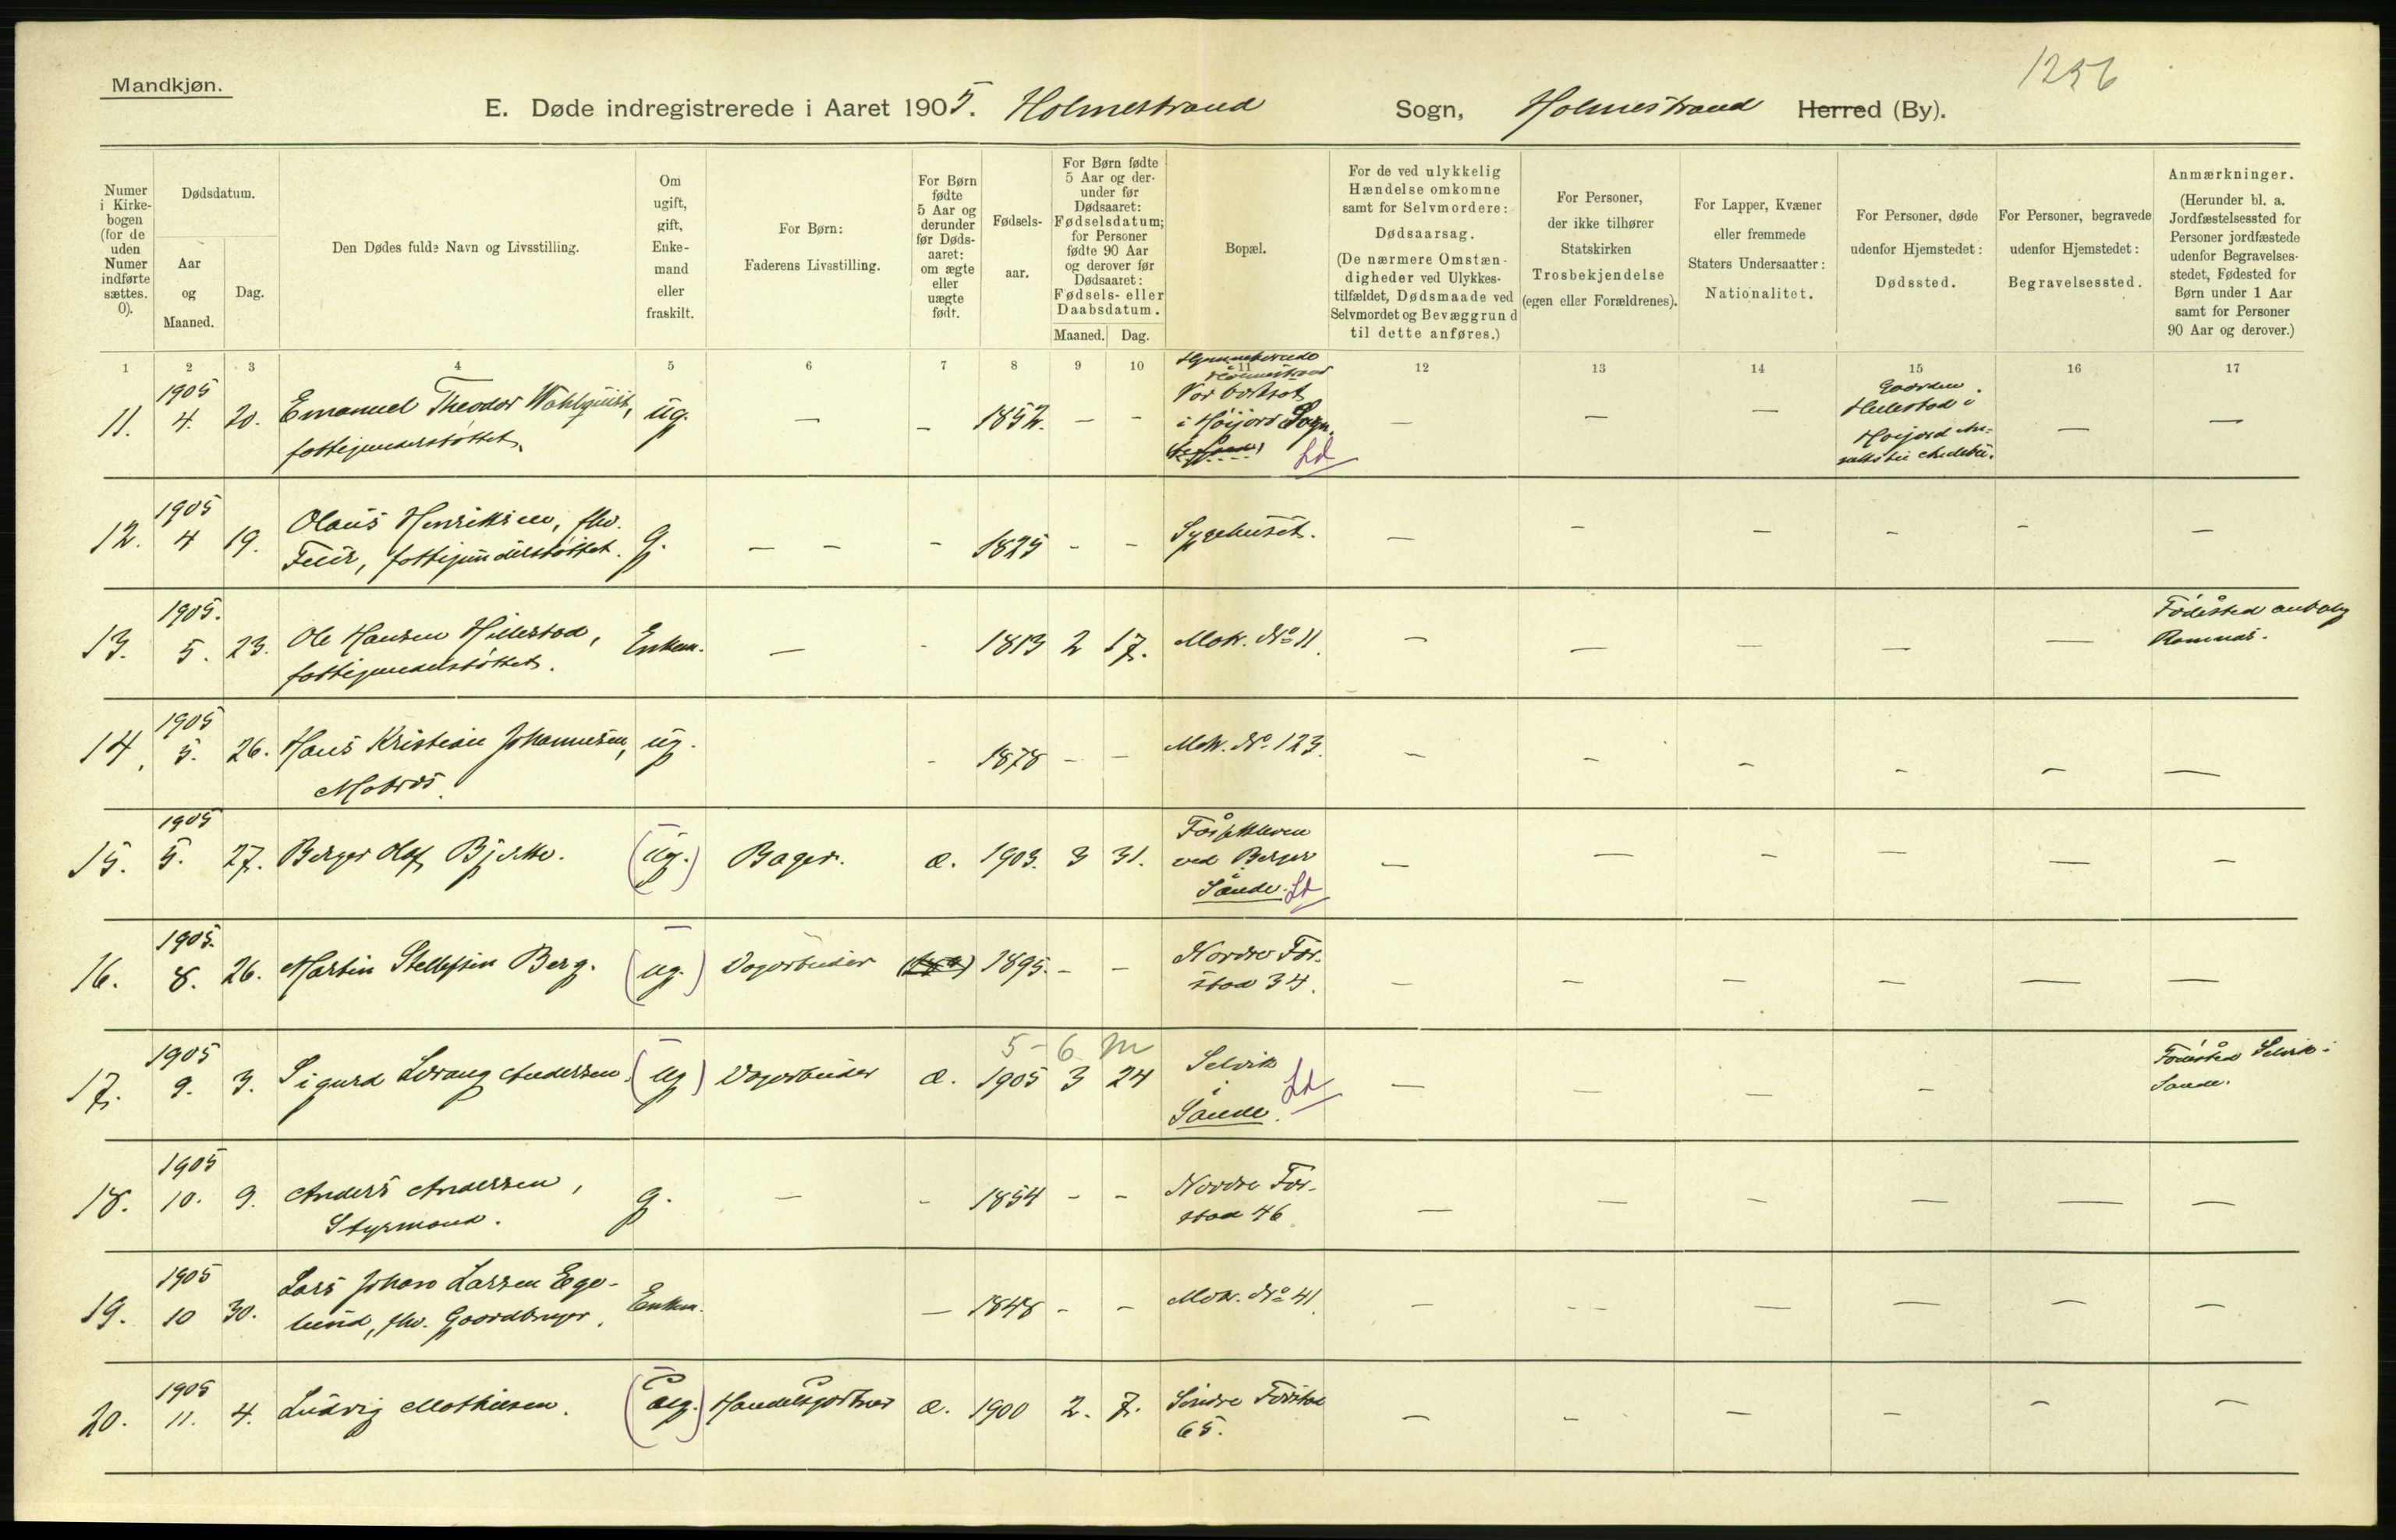 1256
Mandkjøn.
E. Døde indregistrerede i Aaret 1905. Holmestrand Sogn, Holmestrand Herred (By).
Numer i Kirkebogen (for de uden Numer indførte sættes. 0).
Dødsdatum.
Aar og Maaned.
Dag.
Den Dødes fulde Navn og Livsstilling.
Om ugift, gift, Enkemand eller fraskilt.
For Børn: Faderens Livsstilling.
For Børn fødte 5 Aar og derunder før Dødsaaret: om ægte eller uægte født.
Fødselsaar.
For Børn fødte 5 Aar og derunder før Dødsaaret: Fødselsdatum; for Personer fødte 90 Aar og derover før Dødsaaret: Fødsels- eller Daabsdatum.
Maaned. Dag.
Bopæl.
For de ved ulykkelig Hændelse omkomne samt for Selvmordere: Dødsaarsag. (De nærmere Omstændigheder ved Ulykkestilfældet, Dødsmaade ved Selvmordet og Bevæggrund til dette anføres.)
For Personer, der ikke tilhører Statskirken Trosbekjendelse (egen eller Forældrenes).
For Lapper, Kvæner eller fremmede Staters Undersaatter: Nationalitet.
For Personer, døde udenfor Hjemstedet: Dødssted.
For Personer, begravede udenfor Hjemstedet: Begravelsessted.
Anmærkninger. (Herunder bl. a. Jordfæstelsessted for Personer jordfæstede udenfor Begravelsesstedet, Fødested for Børn under 1 Aar samt for Personer 90 Aar og derover.)
1 2 3 4 5 6 7 8 9 10 11 12 13 14 15 16 17
11. 1905 4. 20. Emanuel Theodor Wahlquist, ug. — — 1852. — — Holmestrand — — — Gaarden
fattigunderstøttet. Var bortsat Hillestad i
i Høijord Sogn. Høijord
Ld
12. 1905 4 19. Olaus Henriksen, fhv. g. — — - 1825 - - Sygehuset. — — — — — —
Feier, fattigunderstøttet.
13. 1905. 5. 23. Ole Hansen Hillestad, Enkem. — - 1813 2 17. Matr. No 11. — — — — — Fødested
fattigunderstøttet. Ramnæs.
14. 1905 5. 26. Hans Kristian Johannesen, ug. - 1878 - — Matr. No 123. — — — — — —
Matros.
15. 1905 5. 27. Birger Olaf Bjerke. (ug.) Bager. æ. 1903. 3 31. — — — — — —
ved Berger
Sande. Ld
16. 1905. 8. 26. Martin Steffesen Berg. (ug.) Vognarbeider 1895. - - Nordre For- — — — — — —
stad 34.
5 - 6 m
17. 1905 9. 3. Sigurd Lorang Andersen. (ug) Vognarbeider æ. 1905 3 24 Selvik — — — — Fødested Selvik i
i Sande.
Sande. Ld
18. 1905 10. 9. Anders Andersen, g. — - 1854 - - Nordre For- — — — — — —
Styrmand. stad 46.
19. 1905 10 30. Lars Johan Larsen Ege- Enkem. — 1848 - - Matr. No 41. — - - — — — —
lund, fhv. Gaardbruger.
20. 1905 11. 4. Ludvig Mathisen. (ug.) Handelsgartner æ. 1900 2. 7. Søndre Forstad — - — — — —
65.